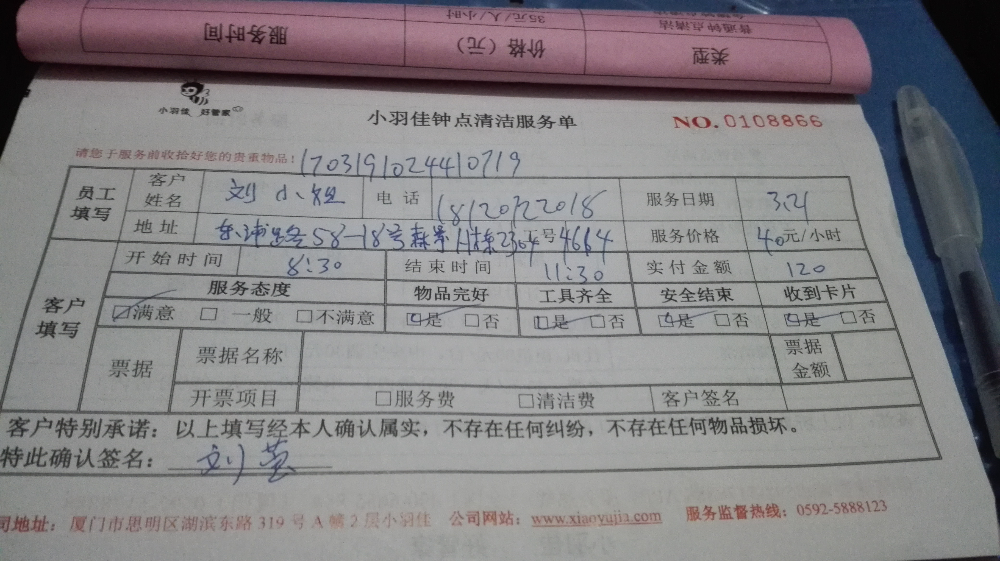 服务时间 价格（元） 类型
35元/人/小时 普通钟点清洁
小羽佳 好管家
小羽佳钟点清洁服务单 NO. 0108866
请您于服务前收拾好您的贵重物品！1703191024410719
员工填写 客户姓名 刘小姐 电话 18120122018 服务日期 3.21
地址 58-18号 2304 工号 4664 服务价格 40元/小时
客户填写 开始时间 8:30 结束时间 11:30 实付金额 120
服务态度 物品完好 工具齐全 安全结束 收到卡片
☑满意 □一般 □不满意 ☑是 □否 ☑是 □否 ☑是 □否 ☑是 □否
票据 票据名称 票据金额
开票项目 □服务费 □清洁费 客户签名
客户特别承诺：以上填写经本人确认属实，不存在任何纠纷，不存在任何物品损坏。
特此确认签名：刘莹
司地址：厦门市思明区湖滨东路319号A幢2层小羽佳 公司网站：www.xiaoyujia.com 服务监督热线：0592-5888123